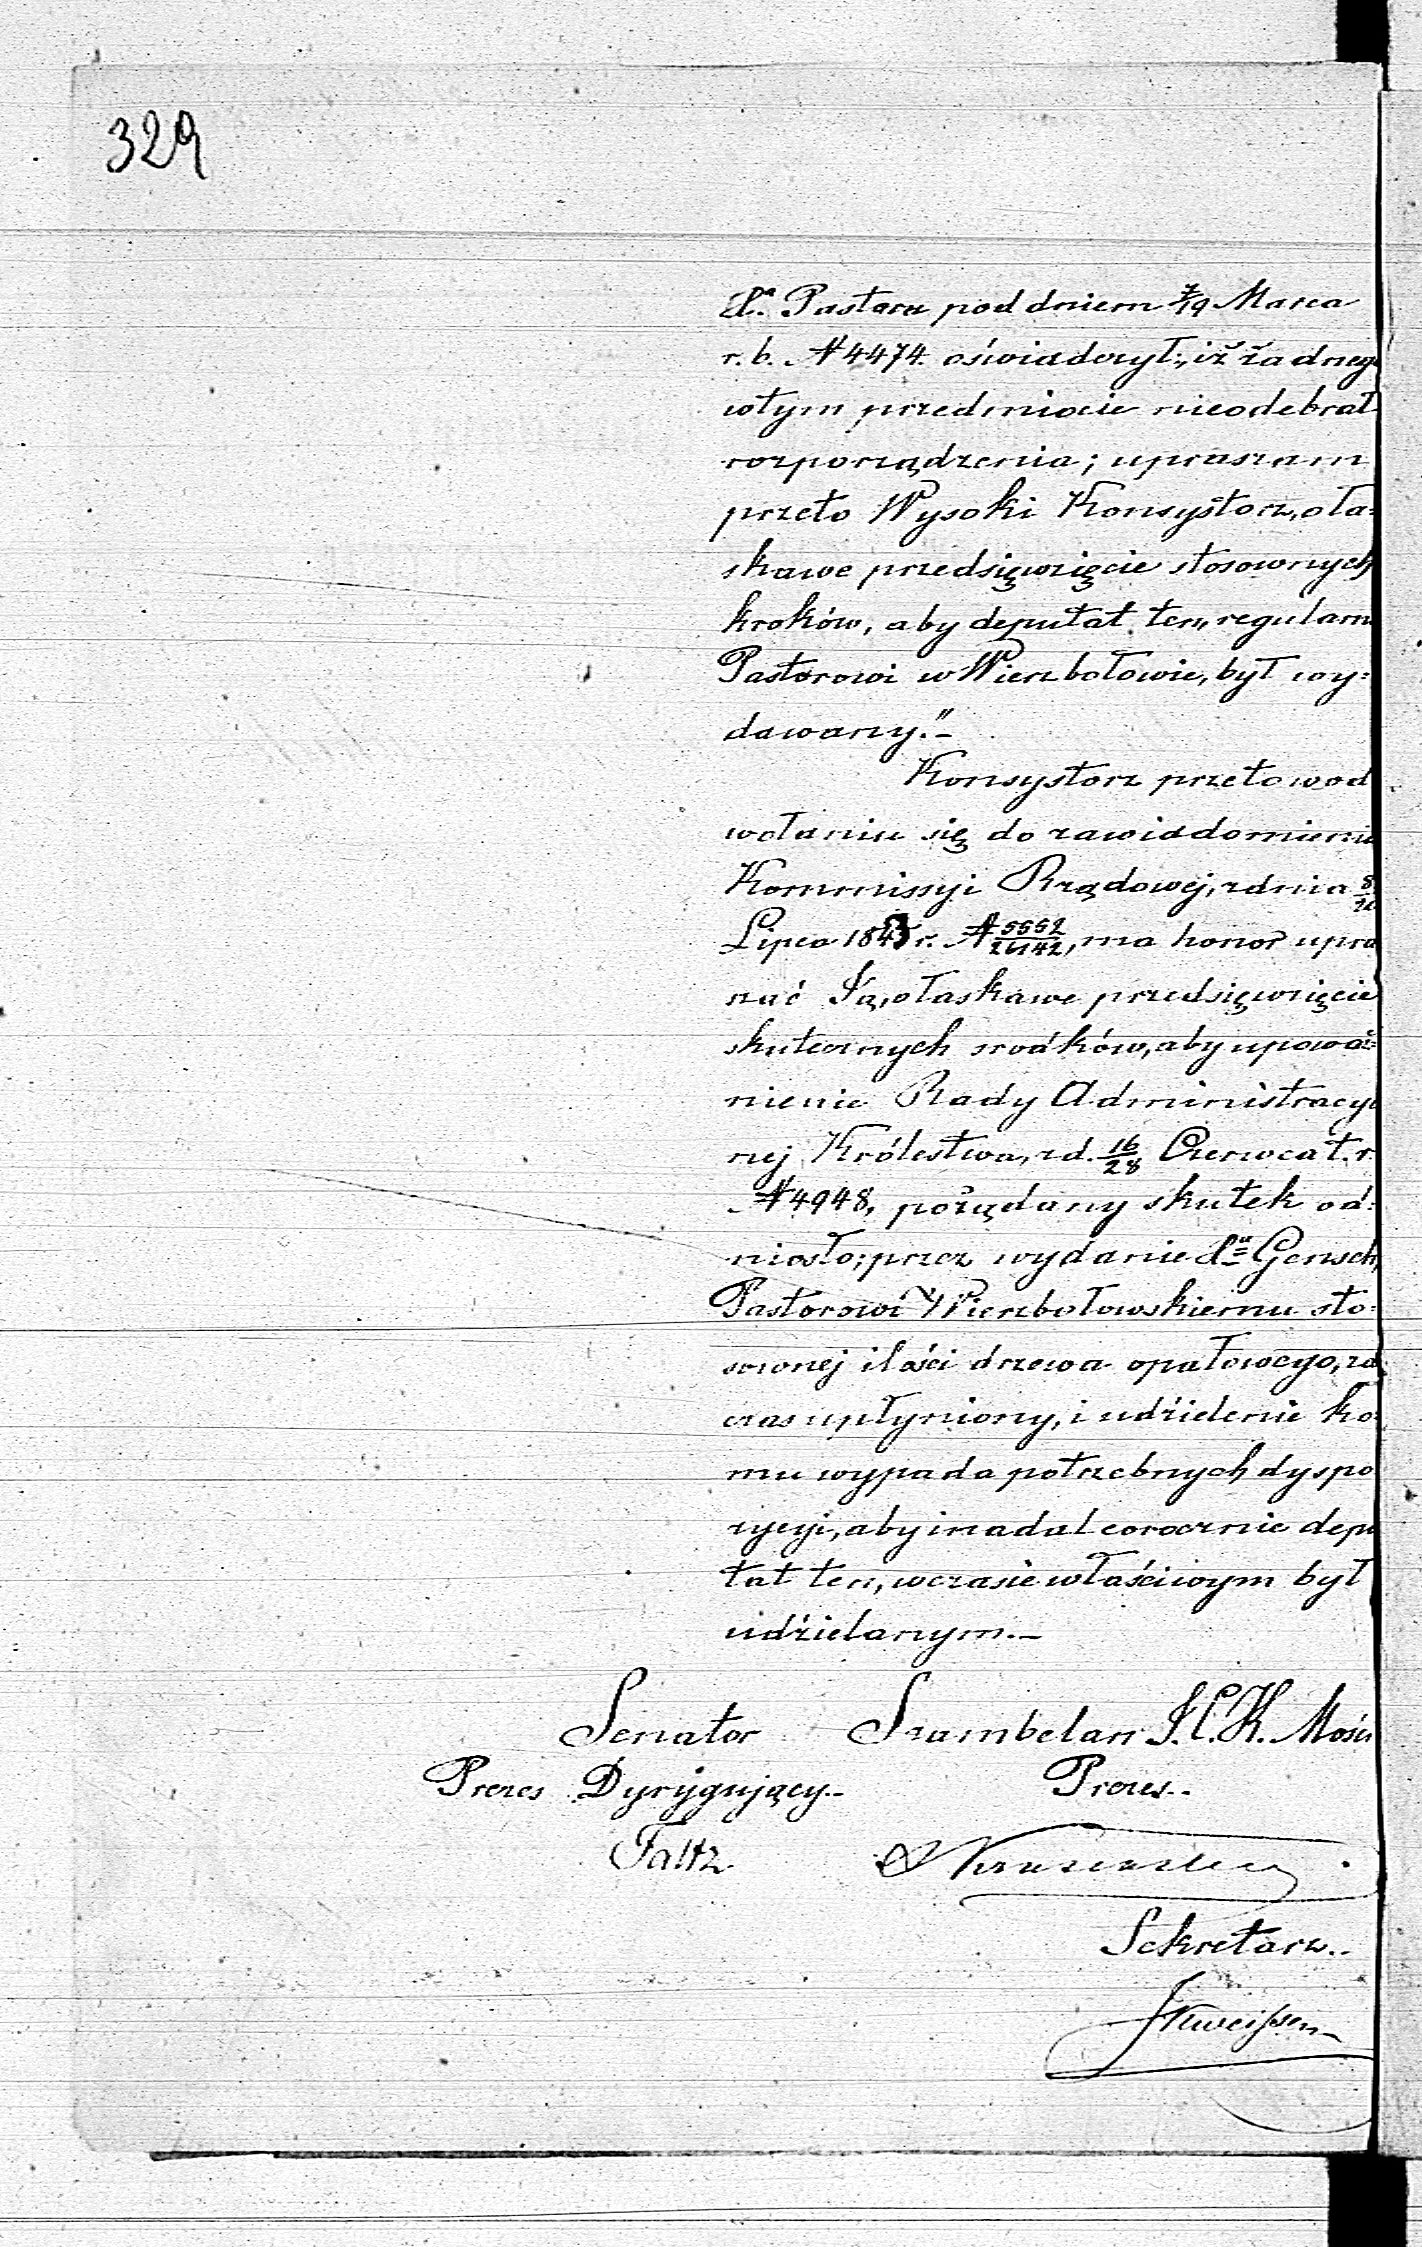 329
X. Pastora pod dniem 7/19 Marca
r. b. N 4474. oświadczył; iż żadnego
wtym przedmiocie nieodebrał
rozporządzenia; upraszam
przeto Wysoki Konsystorz, o ła=
skawe przedsięwzięcie stosownych
kroków, aby deputat ten, regularn
Pastorowi w Wierzbołowie, był wy=
dawany."–
Konsystorz przeto wod
wołaniu się do zawiadomienia
Kommissyi Rządowej, z dnia 8/20
Lipca 1843 r. N 5552/26142, ma honor upra
szać Ją, o łaskawe przedsięwzięcie
skutecznych srodków, aby upoważ=
nienie Rady Administracyj
nej Królestwa, z d. 16/28 Czerwca t. r.
N 4948, pożądany skutek od=
niosło; przez wydanie Xu Gensch,
Pastorowi Wierzbołowskiemu sto=
sownej ilości drzewa opałowego, za
czas upłyniony, i udzielenie ko=
mu wypada potrzebnych dyspo
zycyi, aby i nadal corocznie depu
tat ten, wczasie właściwym był
udzielanym.–
Senator Szambelan J. C. K. Mości
Prezes Dyrygujący.. Prezes..
Faltz
Sekretarz..